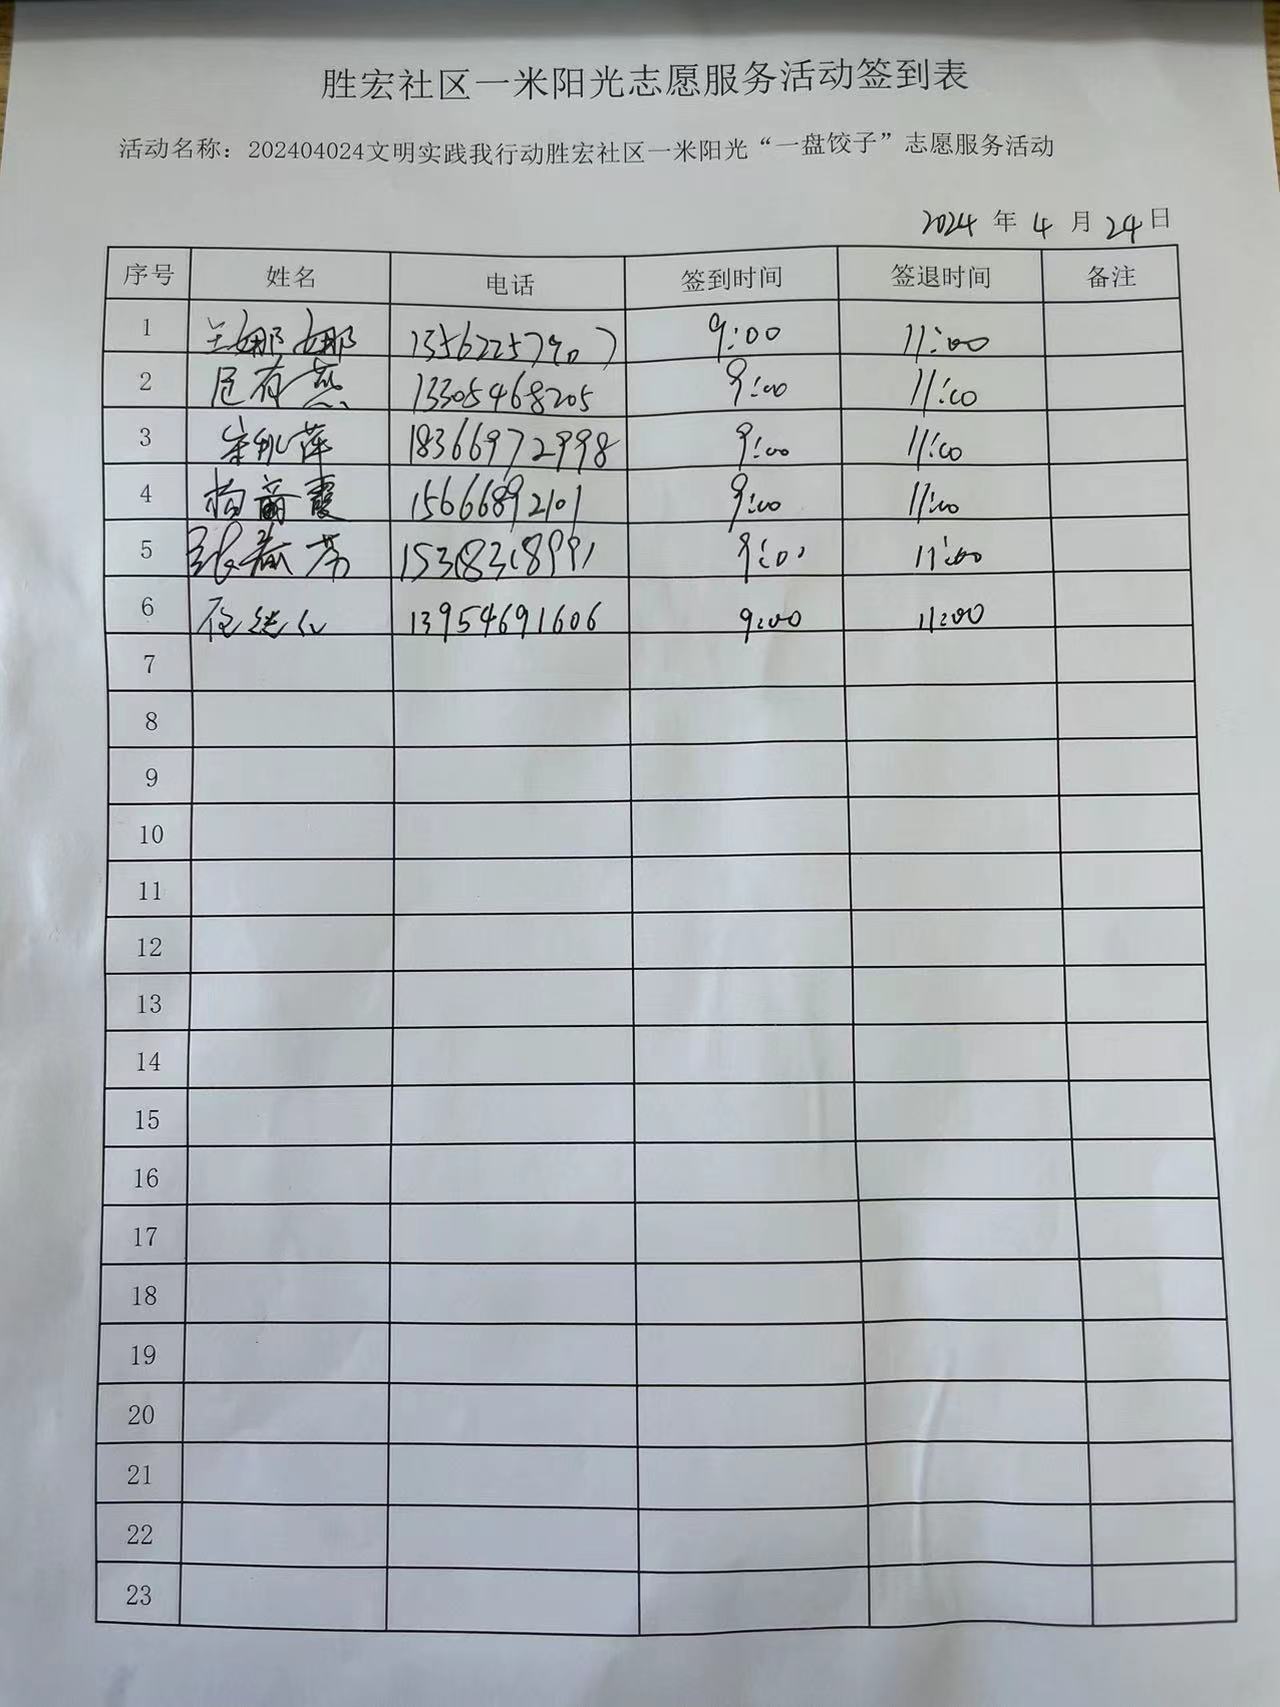 胜宏社区一米阳光志愿服务活动签到表
活动名称：202404024文明实践我行动胜宏社区一米阳光“一盘饺子”志愿服务活动
2024 年 4 月 24 日
序号 姓名 电话 签到时间 签退时间 备注
1 王娜娜 13562257907 9:00 11:00
2 有燕 13305468205 9:00 11:00
3 萍 18366972998 9:00 11:00
4 霞 15666892101 9:00 11:00
5 张 芳 9:00 11:00
6 13954691606 9:00 11:00
7
8
9
10
11
12
13
14
15
16
17
18
19
20
21
22
23